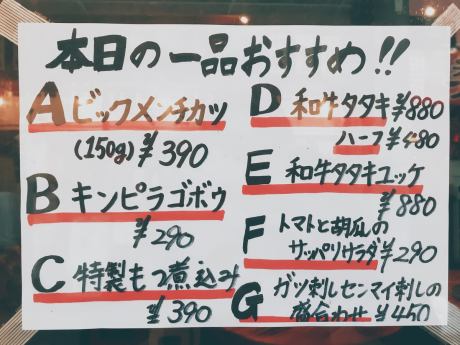 本日の一品おすすめ!!
A ビックメンチカツ
(150g) ¥390
B キンピラゴボウ
¥290
C 特製もつ煮込み
¥390
D 和牛タタキ ¥880
ハーフ ¥480
E 和牛タタキユッケ
¥880
F トマトと胡瓜の
サッパリサラダ ¥290
G ガツ刺しセンマイ刺しの
盛合わせ ¥450